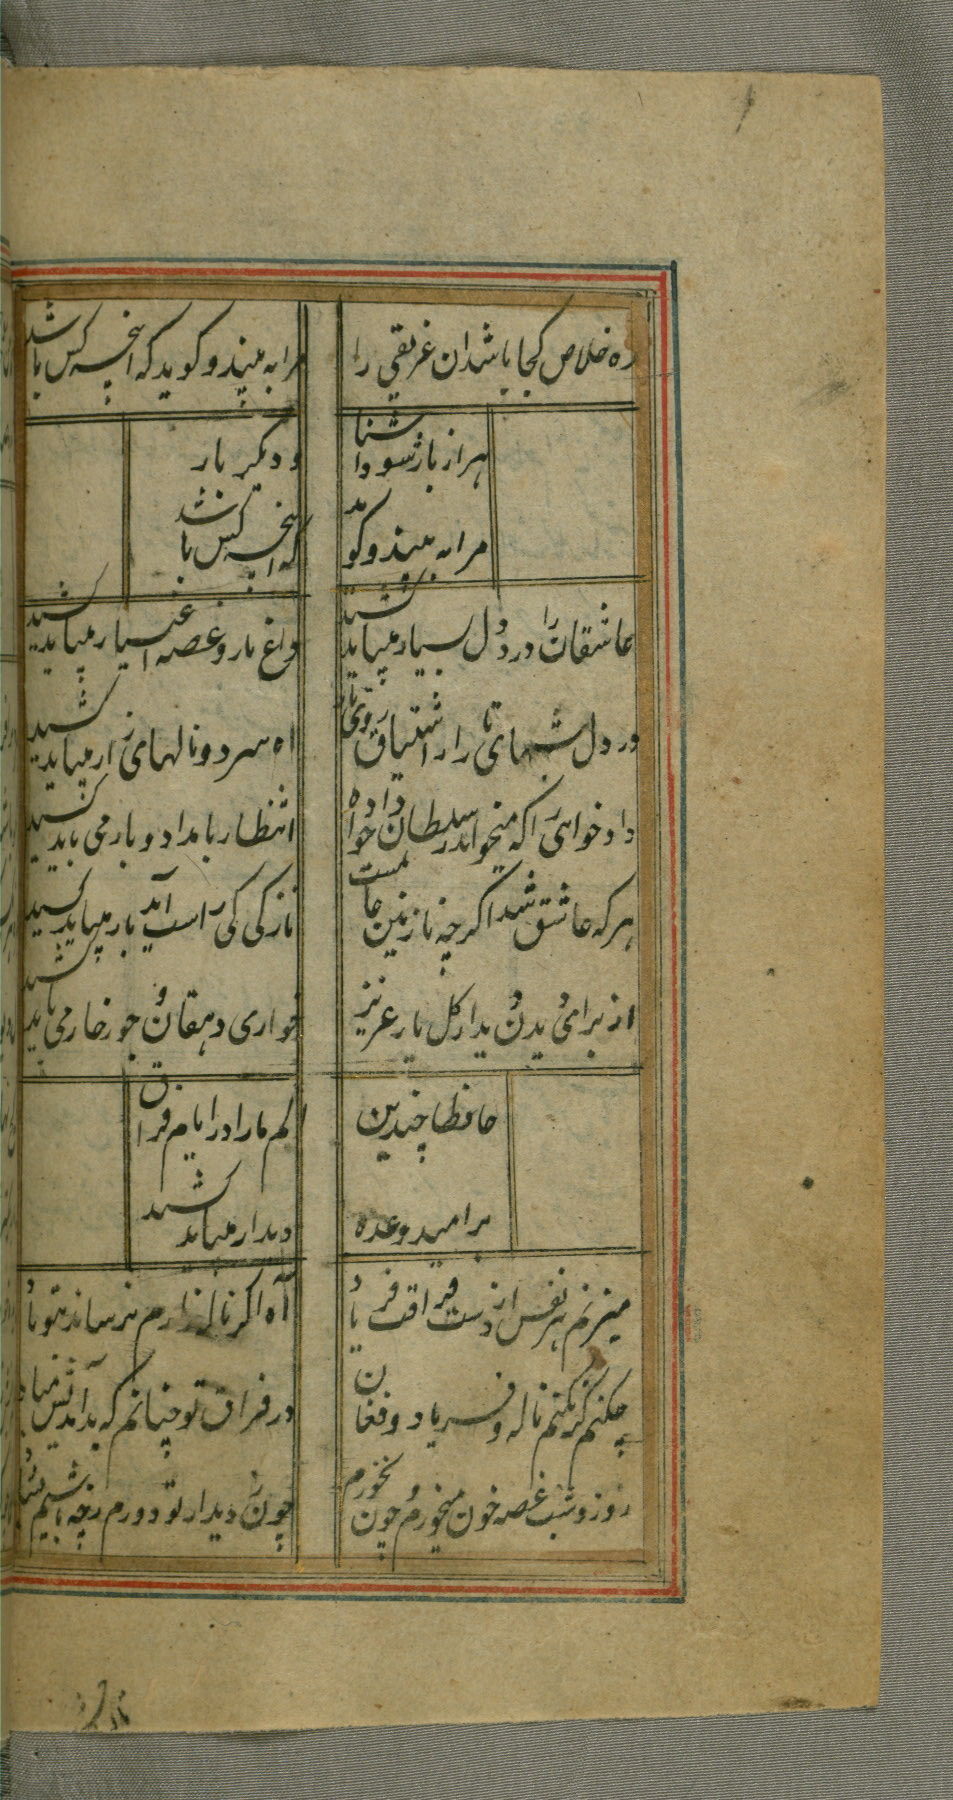 ره خلاص کجا باشد ان غریقی را
مرا به بیند و کوید که این چه کس باشد
هزار بار شود اشنا
و دیگر بار
مرا به بیند و کوید
که این چه کس باشد
عاشقان را درد دل بسیار میباید کشید
داغ یار و غصه اغیار میباید کشید
در دل شبهای تار از اشتیاق روی یار
اه سرد و نالهای زار میباید کشید
داد خواهی را که میخواهد ز سلطان داد خواه
انتظار بامداد و بار می باید کشید
هر که عاشق شد اکر چه نازنین
نازکی کی راست آید بار میباید کشید
از برای دیدن دیدار کل یار عزیز
خواری دهقان و جور خار می باید کشید
حافظا چندین
الم ما را در ایام فراق
بر امید وعده
دیدار میباید کشید
میزنم هر نفس از دست فراقت فریاد
آه اگر ناله زارم نرساند بتو باد
چکنم گر نکنم ناله و فریاد و فغان
در فراق تو چنانم که بداندیش مباد
روز و شب غصه خون میخورم و چون نخورم
چون ز دیدار تو دورم بچه باشم شاد